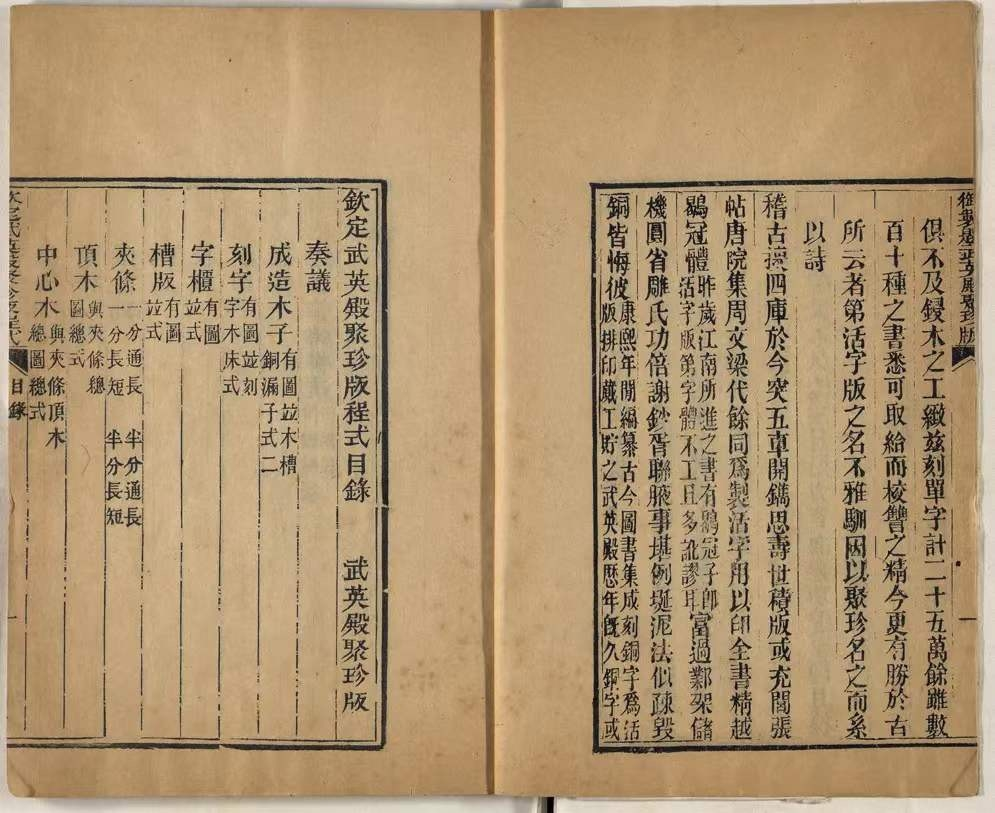 御製題武英殿聚珍版
一
俱不及鋟木之工緻兹刻單字計二十五萬餘雖數
百十種之書悉可取給而校讐之精今更有勝於古
所云者第活字版之名不雅馴因以聚珍名之而系
以詩
稽古搜四庫於今突五車開鐫思壽世積版或充閭張
帖唐院集周文梁代餘同爲製活字用以印全書精越
鶡冠體昨歲江南所進之書有鶡冠子即活字版第字體不工且多訛謬耳富過鄴架儲
機圓省雕氏功倍謝鈔胥聯腋事堪例埏泥法似疎毀
銅昔悔彼康熙年閒編纂古今圖書集成刻銅字爲活版排印蕆工貯之武英殿歷年旣久銅字或
欽定武英殿聚珍版程式目錄　武英殿聚珍版
奏議
成造木子有圖並木槽銅漏子式二
刻字有圖並刻字木床式
字櫃有圖並式
槽版有圖並式
夾條一分通長　半分通長一分長短　半分長短
頂木與夾條總圖總式
中心木與夾條頂木總圖總式
欽定武英殿聚珍版程式　目錄　一